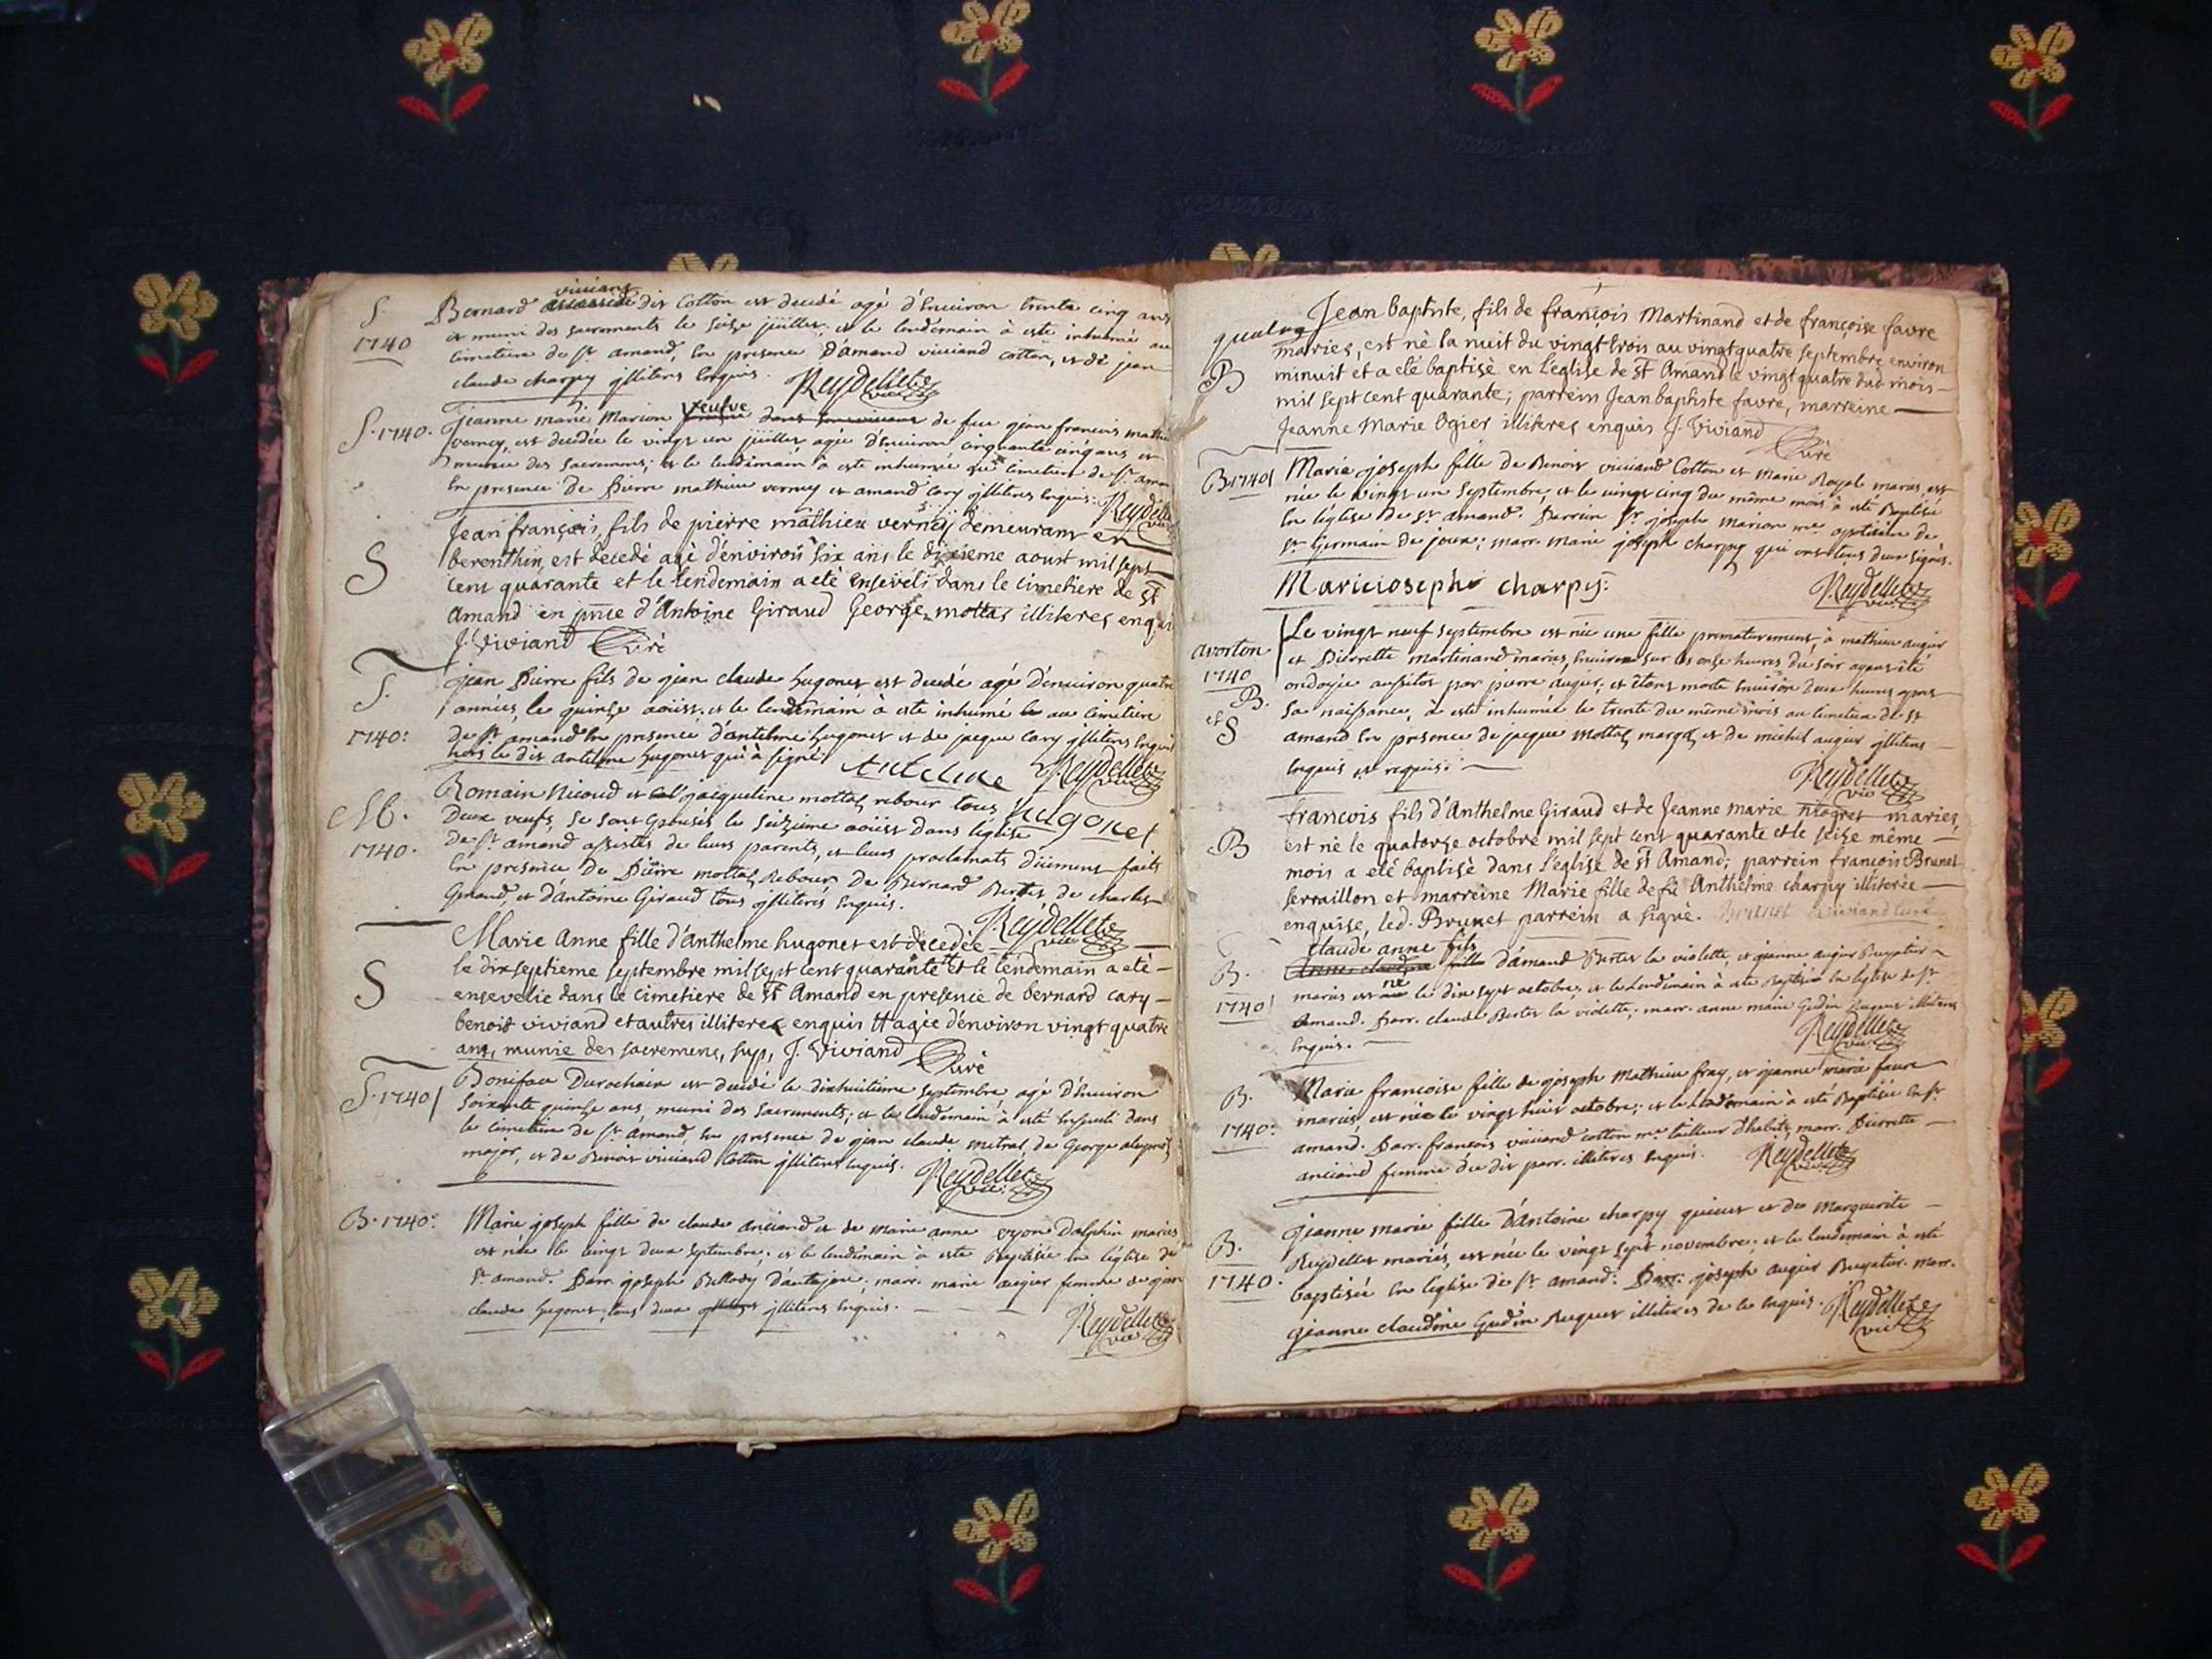 S. 1740
Bernard viviand dit Cotton est decedé agé d'Environ trente cinq ans
et muni des sacrements le seize juillet, et le lendemain à esté inhumé au
cimetiere de st amand, En presence d'amand viviand cotton, et de jean
claude charpy jlliteres Enquis. Reydellet vic
S. 1740.
jeanne marie Marion veufve de feu jean francois mathieu
verney, est decedée le vingt un juillet agée d'Environ cinquante cinq ans et
munie des sacremens; et le lendemain a esté inhumée au cimetiere de st amand
En presence de Pierre mathieu verney et amand Cary jlliteres Enquis. Reydellet
S
Jean françois, fils de pierre mathieu verney demeurant en
berenthin, est decedé agé d'environ six ans le dixieme aoust mil sept
cent quarante et le lendemain a eté enseveli dans le cimetiere de st
Amand en pnce d'Antoine Giraud George mottas illiteres enquis
J. Viviand Curé
S. 1740:
jean Pierre fils de jean claude hugonet est decedé agé d'environ quatre
années, le quinze aoüst, et le lendemain a esté inhumé au cimetiere
de st amand En presence d'antelme hugonet et de jaque Cary jlliteres Enquis
hors le dit antelme hugonet qui à signé. Antelme Reydellet vic
hugonet
M. 1740.
Romain Nicoud et jacqueline mottas rebour tous
Deux veufs, se sont Epousés le seizieme aoüst dans leglise
de st amand assistés de leurs parents, et leurs proclamats düement faits
En presence de Pierre mottas Rebour de Bernard Bertet, de charles
Giraud, et d'Antoine Giraud tous jlliterés Enquis. Reydellet vic
S
Marie Anne fille d'anthelme hugonet est decedée
le dixseptieme septembre mil sept cent quarante et le lendemain a eté
ensevelie dans le cimetiere de st Amand en presence de bernard cary
benoit viviand et autres illiteres enquis agée d'environ vingt quatre
ans, munie des sacremens, J. Viviand Curé
S. 1740
Boniface Durochain est decedé le dixhuitieme septembre, agé d'Environ
soixante quinze ans, muni des sacrements; et le lendemain à esté Enseveli dans
le cimetiere de st amand, En presence de jean claude mitral, de George
major, et de Benoit viviand Cotton jlliteres Enquis. Reydellet vic
B. 1740:
Marie joseph fille de claude anciand et de marie anne vyon Dalphin mariés
est née le vingt deux septembre; et le lendemain à esté Baptisée En l'église de
st amand. Parr. joseph marr. marie augier femme de jean
claude hugonet, tous deux jlliteres Enquis.
Reydellet vic
Jean baptiste, fils de françois Martinand et de françoise favre
B
mariés, est né la nuit du vingt trois au vingt quatre septembre environ
minuit et a eté baptisé en l'eglise de st Amand le vingt quatre dud. mois
mil sept cent quarante; parrein Jean baptiste favre, marreine
Jeanne Marie Ogier illiteres enquis J. Viviand Curé
B. 1740
Marie joseph fille de Benoit viviand Cotton et Marie Royal mariés, est
née le vingt un septembre, et le vingt cinq du même mois à esté Baptisée
En l'église de st amand. Parrein Sr joseph Marion me de
st Germain de joux; marr. marie joseph charpy qui ont tous deux signés.
Marie ioseph charpy:
Reydellet vic
avorton 1740 B. et S
Le vingt neuf septembre est née une fille prematurement, à mathieu augier
et Pierrette martinand mariés, Environ sur les onze heures du soir ayant été
ondoyée aussitot par pierre augier, et étant morte Environ deux heures apres
sa naissance, à esté inhumée le trente du même mois au cimetiere de st
amand En presence de jaque mottas et de michel augier jlliteres
Enquis et requis:
Reydellet vic
B
francois fils d'Anthelme Giraud et de Jeanne marie mariés,
est né le quatorze octobre mil sept cent quarante et le seize même
mois a eté baptisé dans l'eglise de st Amand; parrein françois Brunet
serraillon et marreine Marie fille de fû Anthelme charpy illiterée
enquise, led. Brunet parrein a signé. Brunet Viviand Curé
B. 1740
Claude anne fils d'amand Bertet la violette, et jeanne augier
mariés est né le dix sept octobre, et le Lendemain à esté Baptisé En l'église de st
Amand. Parr. claude Bertet la violette; marr. anne marie Gudin illiteres
Enquis.
Reydellet vic
B. 1740:
Marie francoise fille de joseph Mathieu fray, et jeanne marie favre
mariés, est née le vingt huit octobre; et le Lendemain à esté Baptisée En st
amand. Parr. francois viviand cotton me tailleur d'habits, marr. Pierrette
anciand femme du dit parr. illiteres Enquis. Reydellet vic
B. 1740.
jeanne marie fille d'Antoine charpy et de Marguerite
Reydellet mariés, est née le vingt sept novembre; et le lendemain à esté
baptisée En l'église de st amand: Parr. joseph augier marr.
jeanne claudine Gudin illiteres de ce Enquis. Reydellet vic